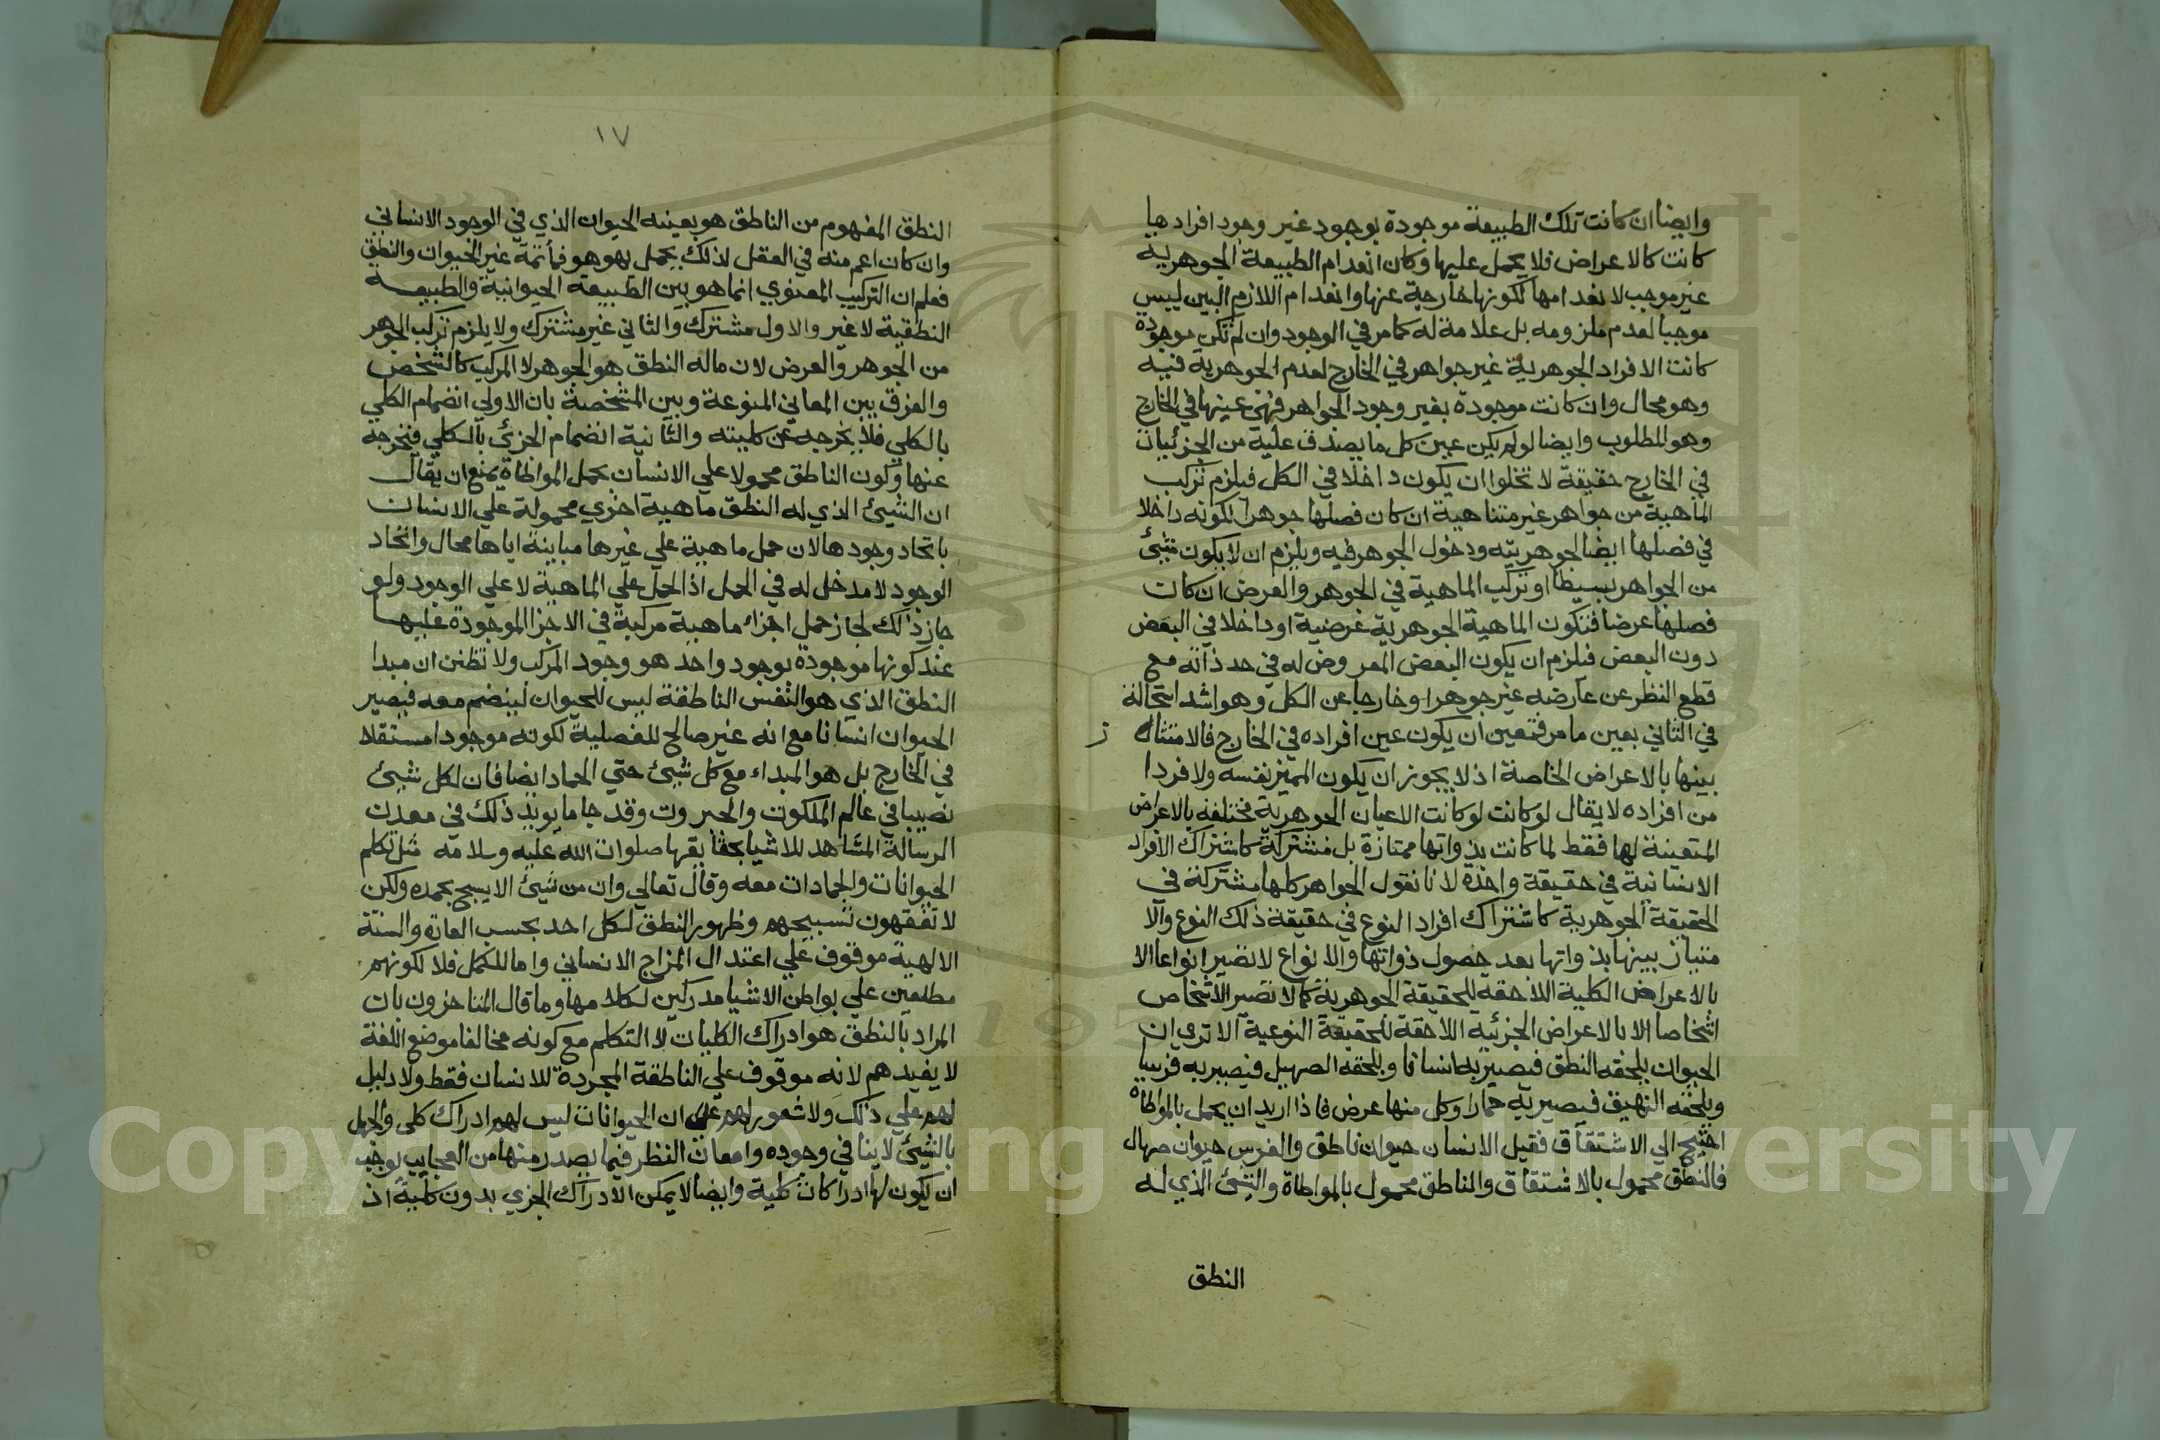 وايضا ان كانت تلك الطبيعة موجودة بوجود غير وجود افرادها
كانت كالاعراض فلا يحمل عليها وكان انعدام الطبيعة الجوهرية
غير موجب لانعدامها لكونها خارجة عنها وانعدام اللازم البين ليس
موجبا لعدم ملزومه بل علامة له كما مر في الوجود وان لم تكن موجودة
كانت الافراد الجوهرية غير جواهر في الخارج لعدم الجوهرية فيه
وهو محال وان كانت موجودة بغير وجود الجواهر فهي عينها في الخارج
وهو المطلوب وايضا لو لم يكن عين كل ما يصدق عليه من الجزئيات
في الخارج حقيقة لا تخلوا ان يكون داخلا في الكل فيلزم تركب
الماهية من جواهر غير متناهية ان كان فصلها جوهرا لكونه داخلا
في فصلها ايضا لجوهريته ودخول الجوهر فيه ويلزم ان لا يكون شيئ
من الجواهر بسيطا او تركب الماهية في الجوهر والعرض ان كانت
فصلها عرضا فتكون الماهية الجوهرية عرضية او داخلا في البعض
دون البعض فيلزم ان يكون البعض المعروض له في حد ذاته مع
قطع النظر عن عارضه غير جوهر او خارجا عن الكل وهو اشد استحالة
في الثاني بعين ما مر فتعين ان يكون عين افراده في الخارج فالامتثاك
ز
بينها بالاعراض الخاصة اذ لا يجوز ان يكون المميز نفسه ولا فردا
من افراده لا يقال لو كانت لو كانت الاعيان الجوهرية مختلفة بالاعراض
المتعينة لها فقط لما كانت بذواتها ممتازة بل مشتركة كاشتراك الافراد
الانسانية في حقيقة واحدة لانا نقول الجواهر كلها مشتركة في
الحقيقة الجوهرية كاشتراك افراد النوع في حقيقة ذلك النوع والا
متياز بينها بذواتها بعد حصول ذواتها والانواع لا تصير انواعا الا
بالاعراض الكلية اللاحقة للحقيقة الجوهرية كما لا تصير الاشخاص
اشخاصا الا بالاعراض الجزئية اللاحقة للحقيقة النوعية الا تري ان
الحيوان يلحقه النطق فيصير به انسانا ويلحقه الصهيل فيصير به فرسا
ويلحقه النهيق فيصير به حمارا وكل منها عرض فاذا اريد ان يحمل بالمواطاة
احتيج الي الاشتقاق فقيل الانسان حيوان ناطق والفرس حيوان صهال
فالنطق محمول بالاشتقاق والناطق محمول بالمواطاة والشيئ الذي له
النطق
١٧
النطق المفهوم من الناطق هو بعينه الحيوان الذي في الوجود الانساني
وان كان اعم منه في العقل لذلك يحمل بهو هو فما ثمة غير الحيوان والنطق
فعلم ان التركيب المعنوي انما هو بين الطبيعة الحيوانية والطبيعة
النطقية لا غير والاول مشترك والثاني غير مشترك ولا يلزم تركب الجوهر
من الجوهر والعرض لان ماله النطق هو الجوهر لا المركب كالشخص
والفرق بين المعاني المنوعة وبين المشخصة بان الاولي انضمام الكلي
بالكلي فلا يخرجه عن كليته والثانية انضمام الجزئ بالكلي فيخرجه
عنها وكون الناطق محمولا علي الانسان بحمل المواطاة يمنع ان يقال
ان الشيئ الذي له النطق ماهية اخري محمولة علي الانسان
باتحاد وجودها لان حمل ماهية علي غيرها مباينة اياها محال واتحاد
الوجود لا مدخل له في الحمل اذ الحمل علي الماهية لا علي الوجود ولو
جاز ذلك لجاز حمل اجزاء ماهية مركبة في الاجزا الموجودة عليها
عند كونها موجودة بوجود واحد هو وجود المركب ولا تظنن ان مبدا
النطق الذي هو النفس الناطقة ليس للحيوان لينضم معه فيصير
الحيوان انسانا مع انه غير صالح للفصلية لكونه موجودا مستقلا
في الخارج بل هو المبداء مع كل شيئ حتي الجماد ايضا فان لكل شيئ
نصيبا في عالم الملكوت والجبروت وقد جا ما يويد ذلك في معدن
الرسالة المشاهد للاشيا بحقايقها صلوات الله عليه وسلامه مثل تكلم
الحيوانات والجمادات معه وقال تعالي وان من شيئ الا يسبح بحمده ولكن
لا تفقهون تسبيحهم وظهور النطق لكل احد بحسب العادة والسنة
الالهية موقوف علي اعتدال المزاج الانساني واما للكمل فلا لكونهم
مطلعين علي بواطن الاشيا مدركين لكلامها وما قال المتاخرون بان
المراد بالنطق هو ادراك الكليات لا التكلم مع كونه مخالفا موضع اللغة
لا يفيدهم لانه موقوف علي الناطقة المجردة للانسان فقط ولا دليل
لهم علي ذلك ولا شعور لهم علي ان الحيوانات ليس لهم ادراك كلي والجهل
بالشيئ لا ينافي وجوده وامعان النظر فيما يصدر منها من العجايب يوجب
ان يكون لها ادراكات كلية وايضا لا يمكن الادراك الجزي بدون كلية اذ
Copyright © King Saud University